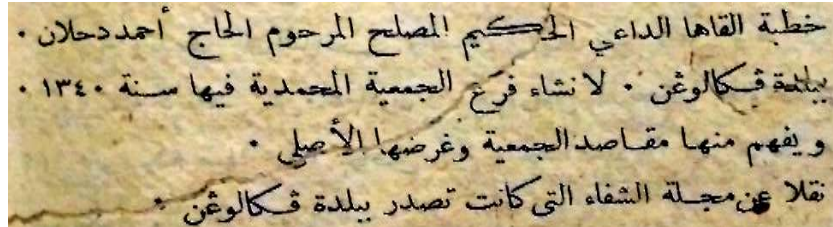 خطبة القاها الداعي الحكيم المصلح المرحوم الحاج أحمد دحلان .
ببلدة ڤكالوڠن . لانشاء فرع الجمعية المحمدية فيها سنة ١٣٤٠ .
ويفهم منها مقاصد الجمعية وغرضها الأصلي .
نقلا عن مجلة الشفاء التي كانت تصدر ببلدة ڤكالوڠن .